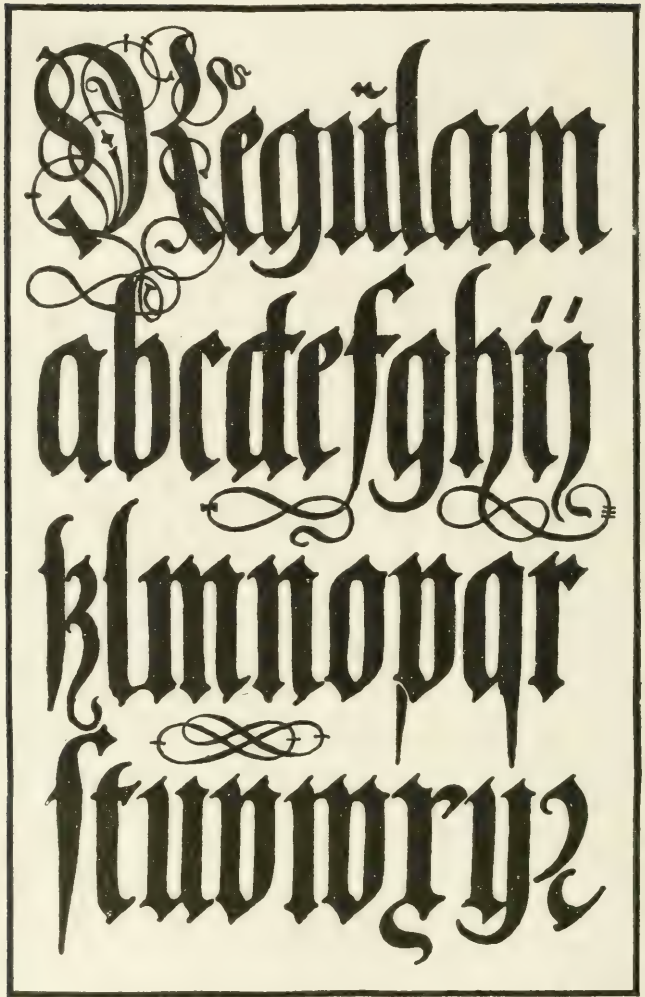 Regülam
abcdefghij
klmnopqr
ſtuvwxyz